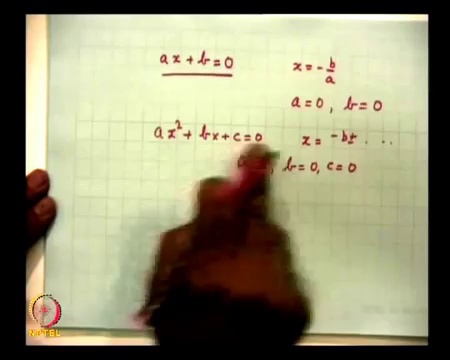 ax + b = 0
x = - b/a
a = 0, b = 0
ax² + bx + c = 0
x = -b± . . .
, b = 0, c = 0
NPTEL